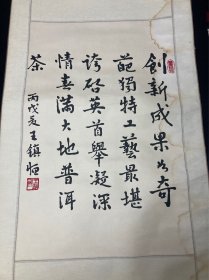 創新成果出奇
葩獨特工藝最堪
誇啟英首舉凝深
情喜滿大地普洱
茶
丙戌夏王鎮恒